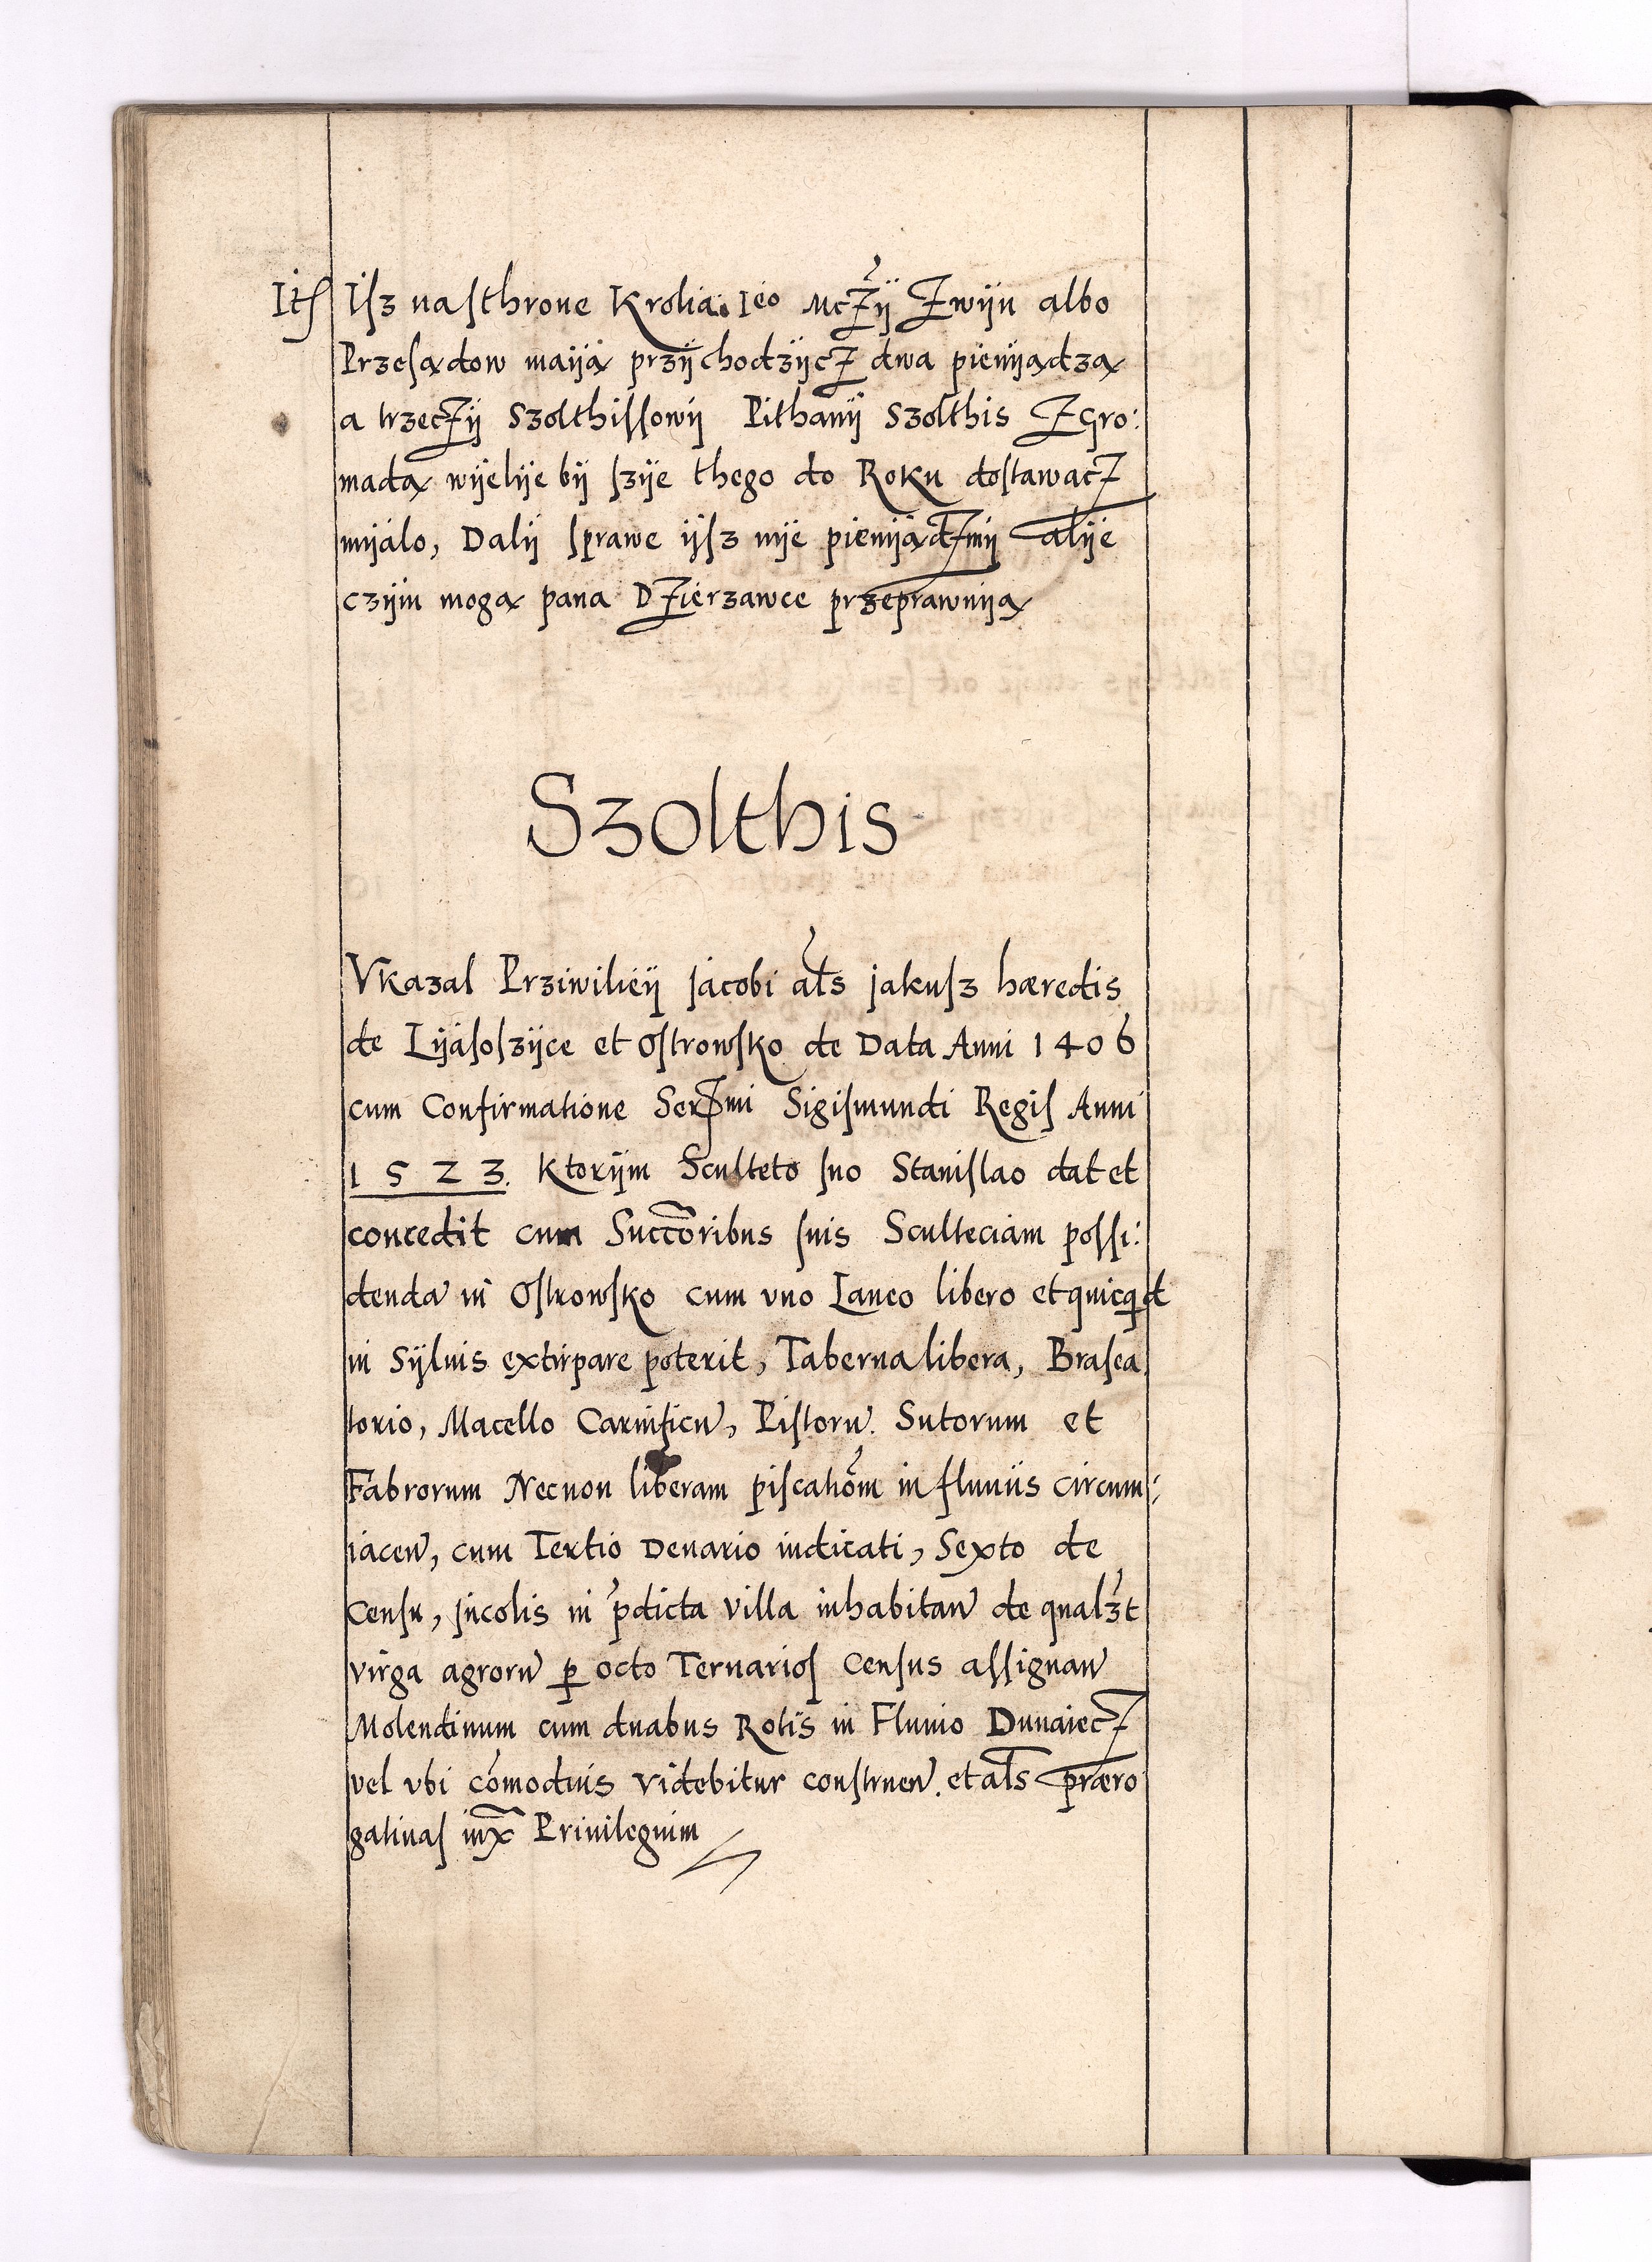 Itſ Iſz naſthrone Krolia Ieo Mczÿ zwÿn albo
Przeſądow maÿą przÿchodzÿcz dwa pienÿądza
a trzeczÿ Szolthiſſowÿ Pithanÿ Szolthis zgro:
madą wÿelÿe bÿ ſzÿe thego do Roku doſtawacz
mÿálo, Dalÿ ſprawe ÿſz nÿe pienÿądzmÿ alÿe
czÿm mogą pana Dzierzawce przeprawnÿą
Szolthis
Vkazal Prziwilieÿ jacobi als jakuſz hæredis
de Lÿáſoſzÿce et Oſtrowſko de Data Anni 1406
cum Confirmatione Serzmi Sigiſmundi Regiſ Anni
1523. Ktorÿm Sculteto ſuo Staniſlao dat et
concedit cum Succoribus ſuis Sculteciam poſſi:
denda in Oſtrowſko cum vno Laneo libero et quicqid
in Sÿluis extirpare poterit, Taberna libera, Braſea
torio, Macello Carnificu, Piſtoru. Sutorum et
Fabrorum Necnon liberam piſcatiom in fluuiis circum:
iacen, cum Tertio Denario iudicati, Sexto de
Cenſu, jncolis in pdicta villa inhabitan de qualzt
virga agroru p octo Ternarioſ Cenſus aſſignan
Molendinum cum duabus Rotis in Fluuio Dunaiecz
vel vbi comodius videbitur conſtruen. et als prærо
gatiuaſ iux Priuilegium